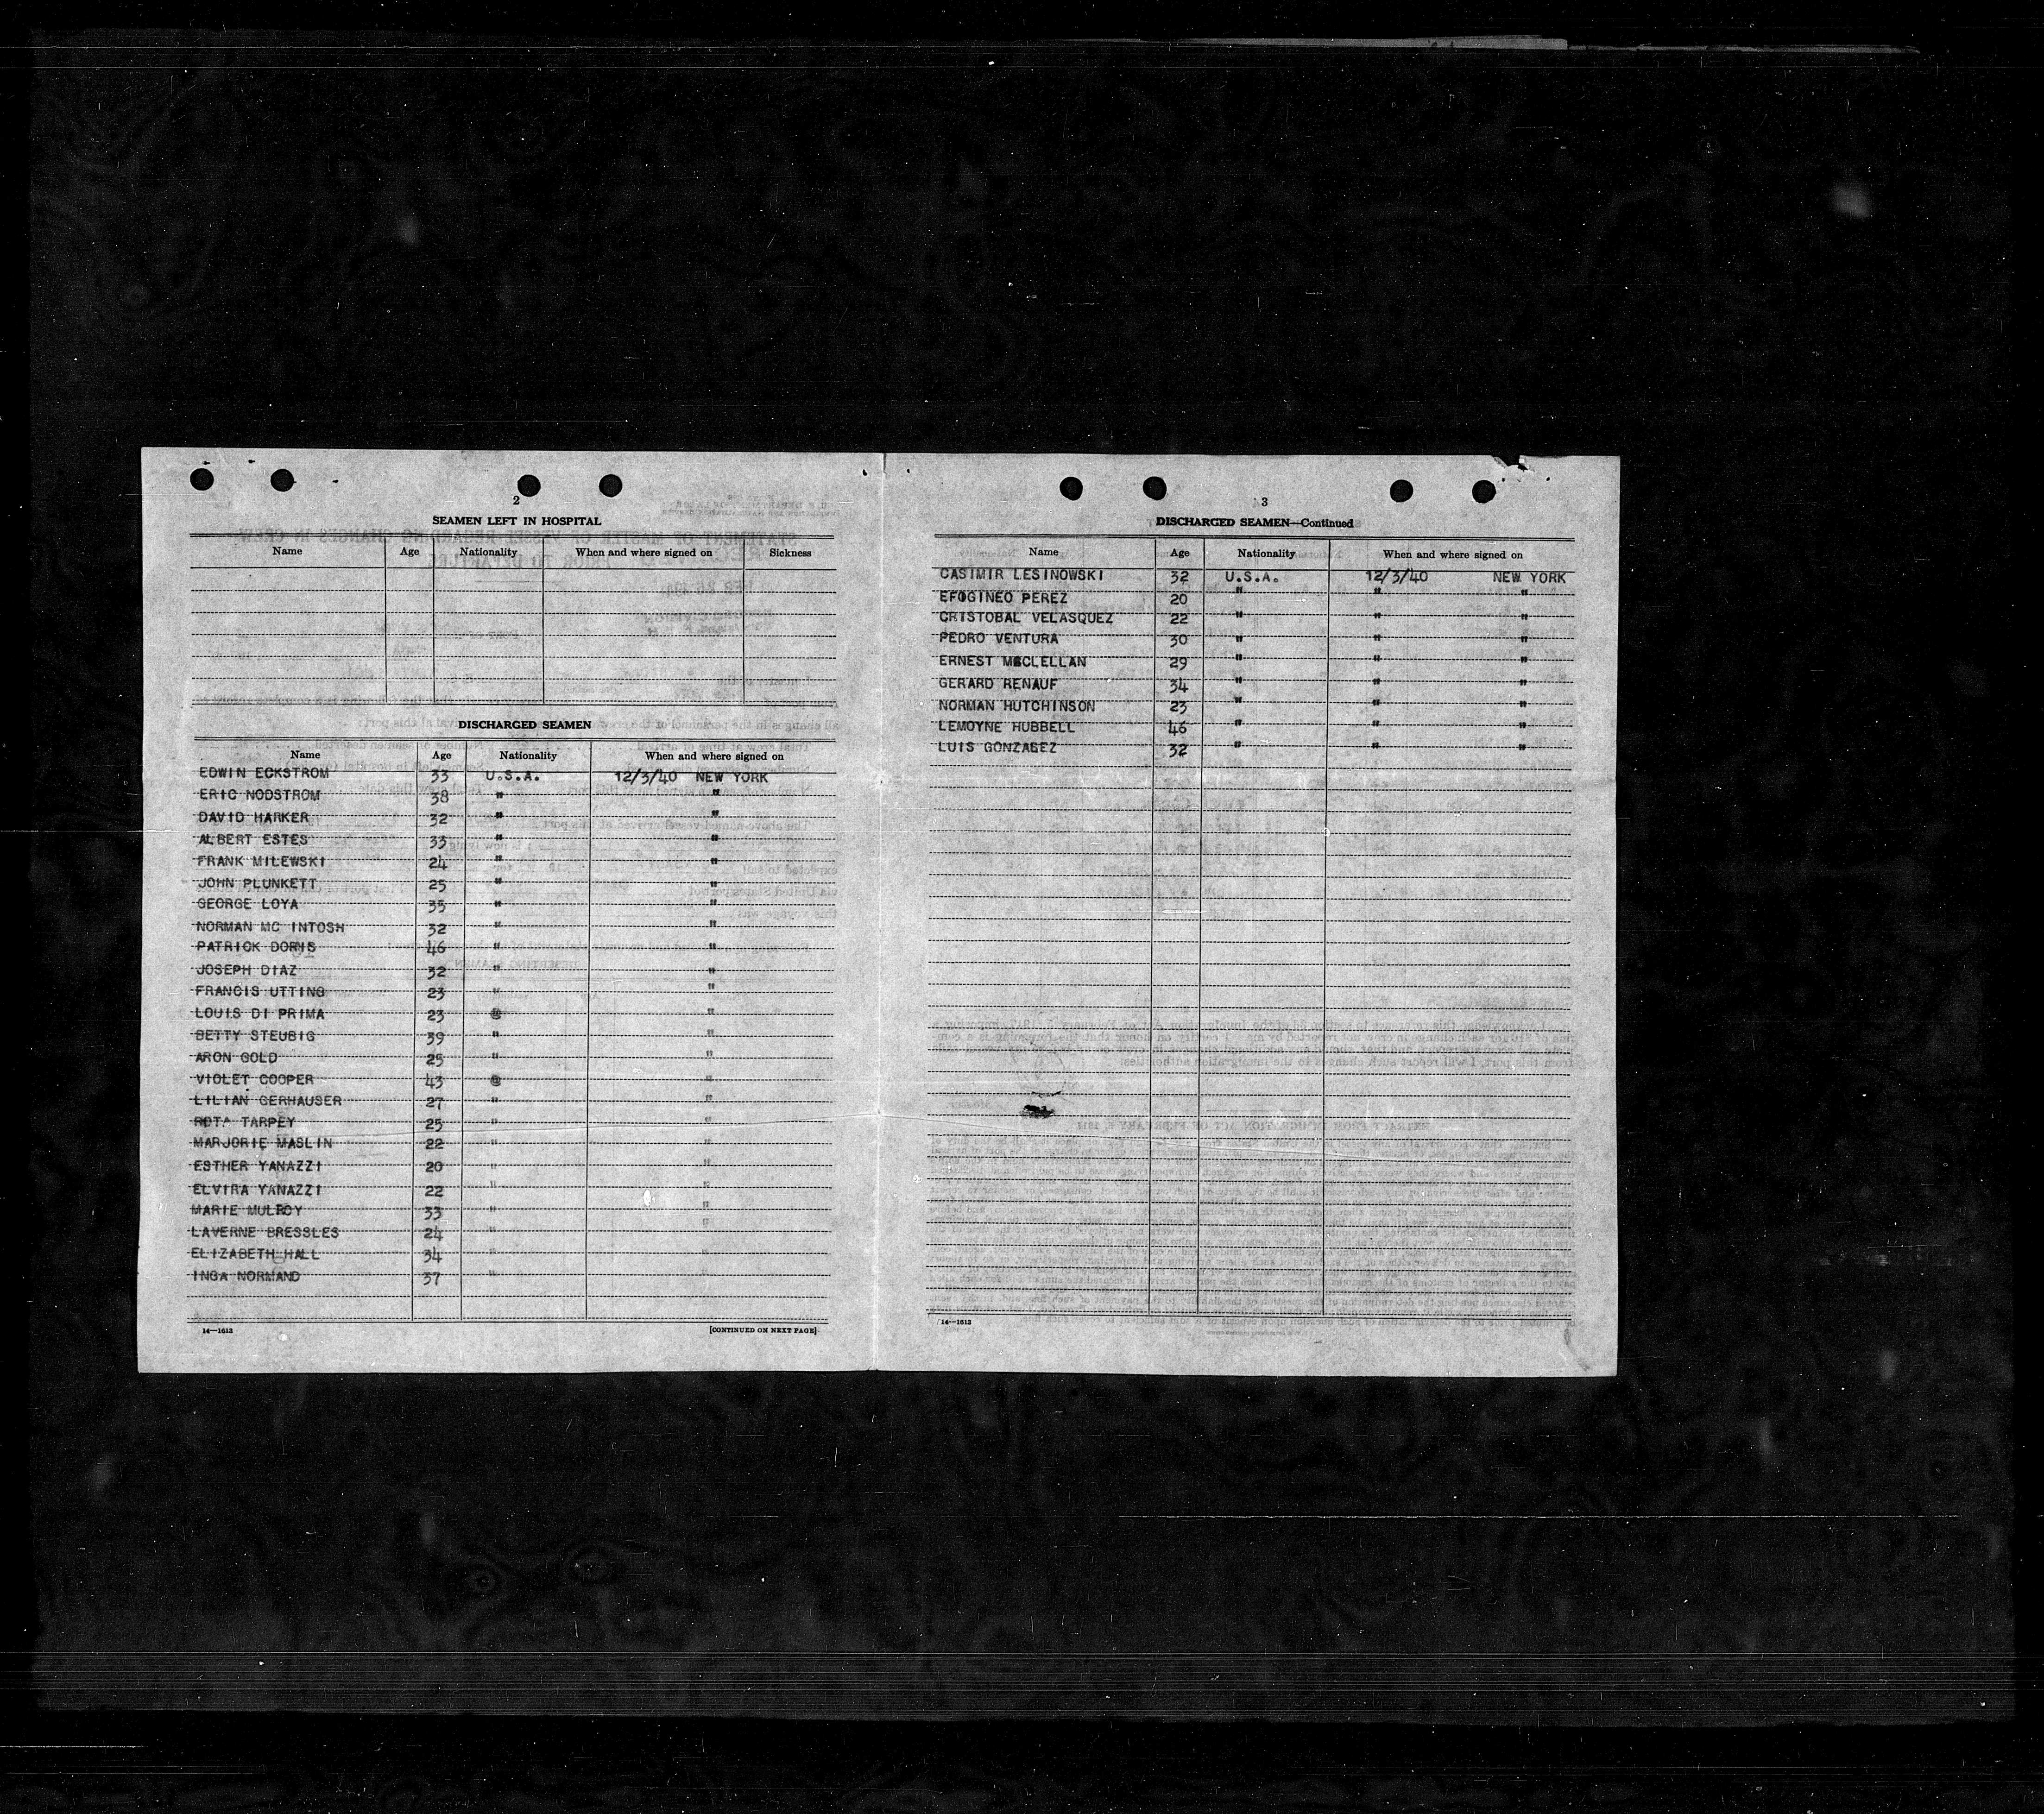 2
SEAMEN LEFT IN HOSPITAL
Name Age Nationality When and where signed on Sickness
DISCHARGED SEAMEN
Name Age Nationality When and where signed on
EDWIN ECKSTROM 33 U.S.A. 12/3/40 NEW YORK
ERIC NODSTROM 38 " "
DAVID HARKER 32 " "
ALBERT ESTES 33 " "
FRANK MILEWSKI 24 " "
JOHN PLUNKETT 25 " "
GEORGE LOYA 35 " "
NORMAN MC INTOSH 32 " "
PATRICK DORIS 46 " "
JOSEPH DIAZ 32 " "
FRANCIS UTTING 23 " "
LOUIS DI PRIMA 23 "
BETTY STEUBIG 39 " "
ARON GOLD 25 " "
VIOLET COOPER 43 "
LILIAN GERHAUSER 27 " "
TARPEY 25 " "
MARJORIE MASLIN 22 " "
ESTHER YANAZZI 20 " "
ELVIRA YANAZZI 22 " "
MARIE MULROY 33 " "
LAVERNE BRESSLES 24 " "
ELIZABETH HALL 34 "
INGA NORMAND 37 "
14—1613 [CONTINUED ON NEXT PAGE]
3
DISCHARGED SEAMEN—Continued
Name Age Nationality When and where signed on
CASIMIR LESINOWSKI 32 U.S.A. 12/3/40 NEW YORK
EFOGINEO PEREZ 20 " " "
CRISTOBAL VELASQUEZ 22 " " "
PEDRO VENTURA 30 " " "
ERNEST MCCLELLAN 29 " " "
GERARD RENAUF 34 " " "
NORMAN HUTCHINSON 23 " " "
LEMOYNE HUBBELL 46 " " "
LUIS GONZALEZ 32 " " "
14—1613